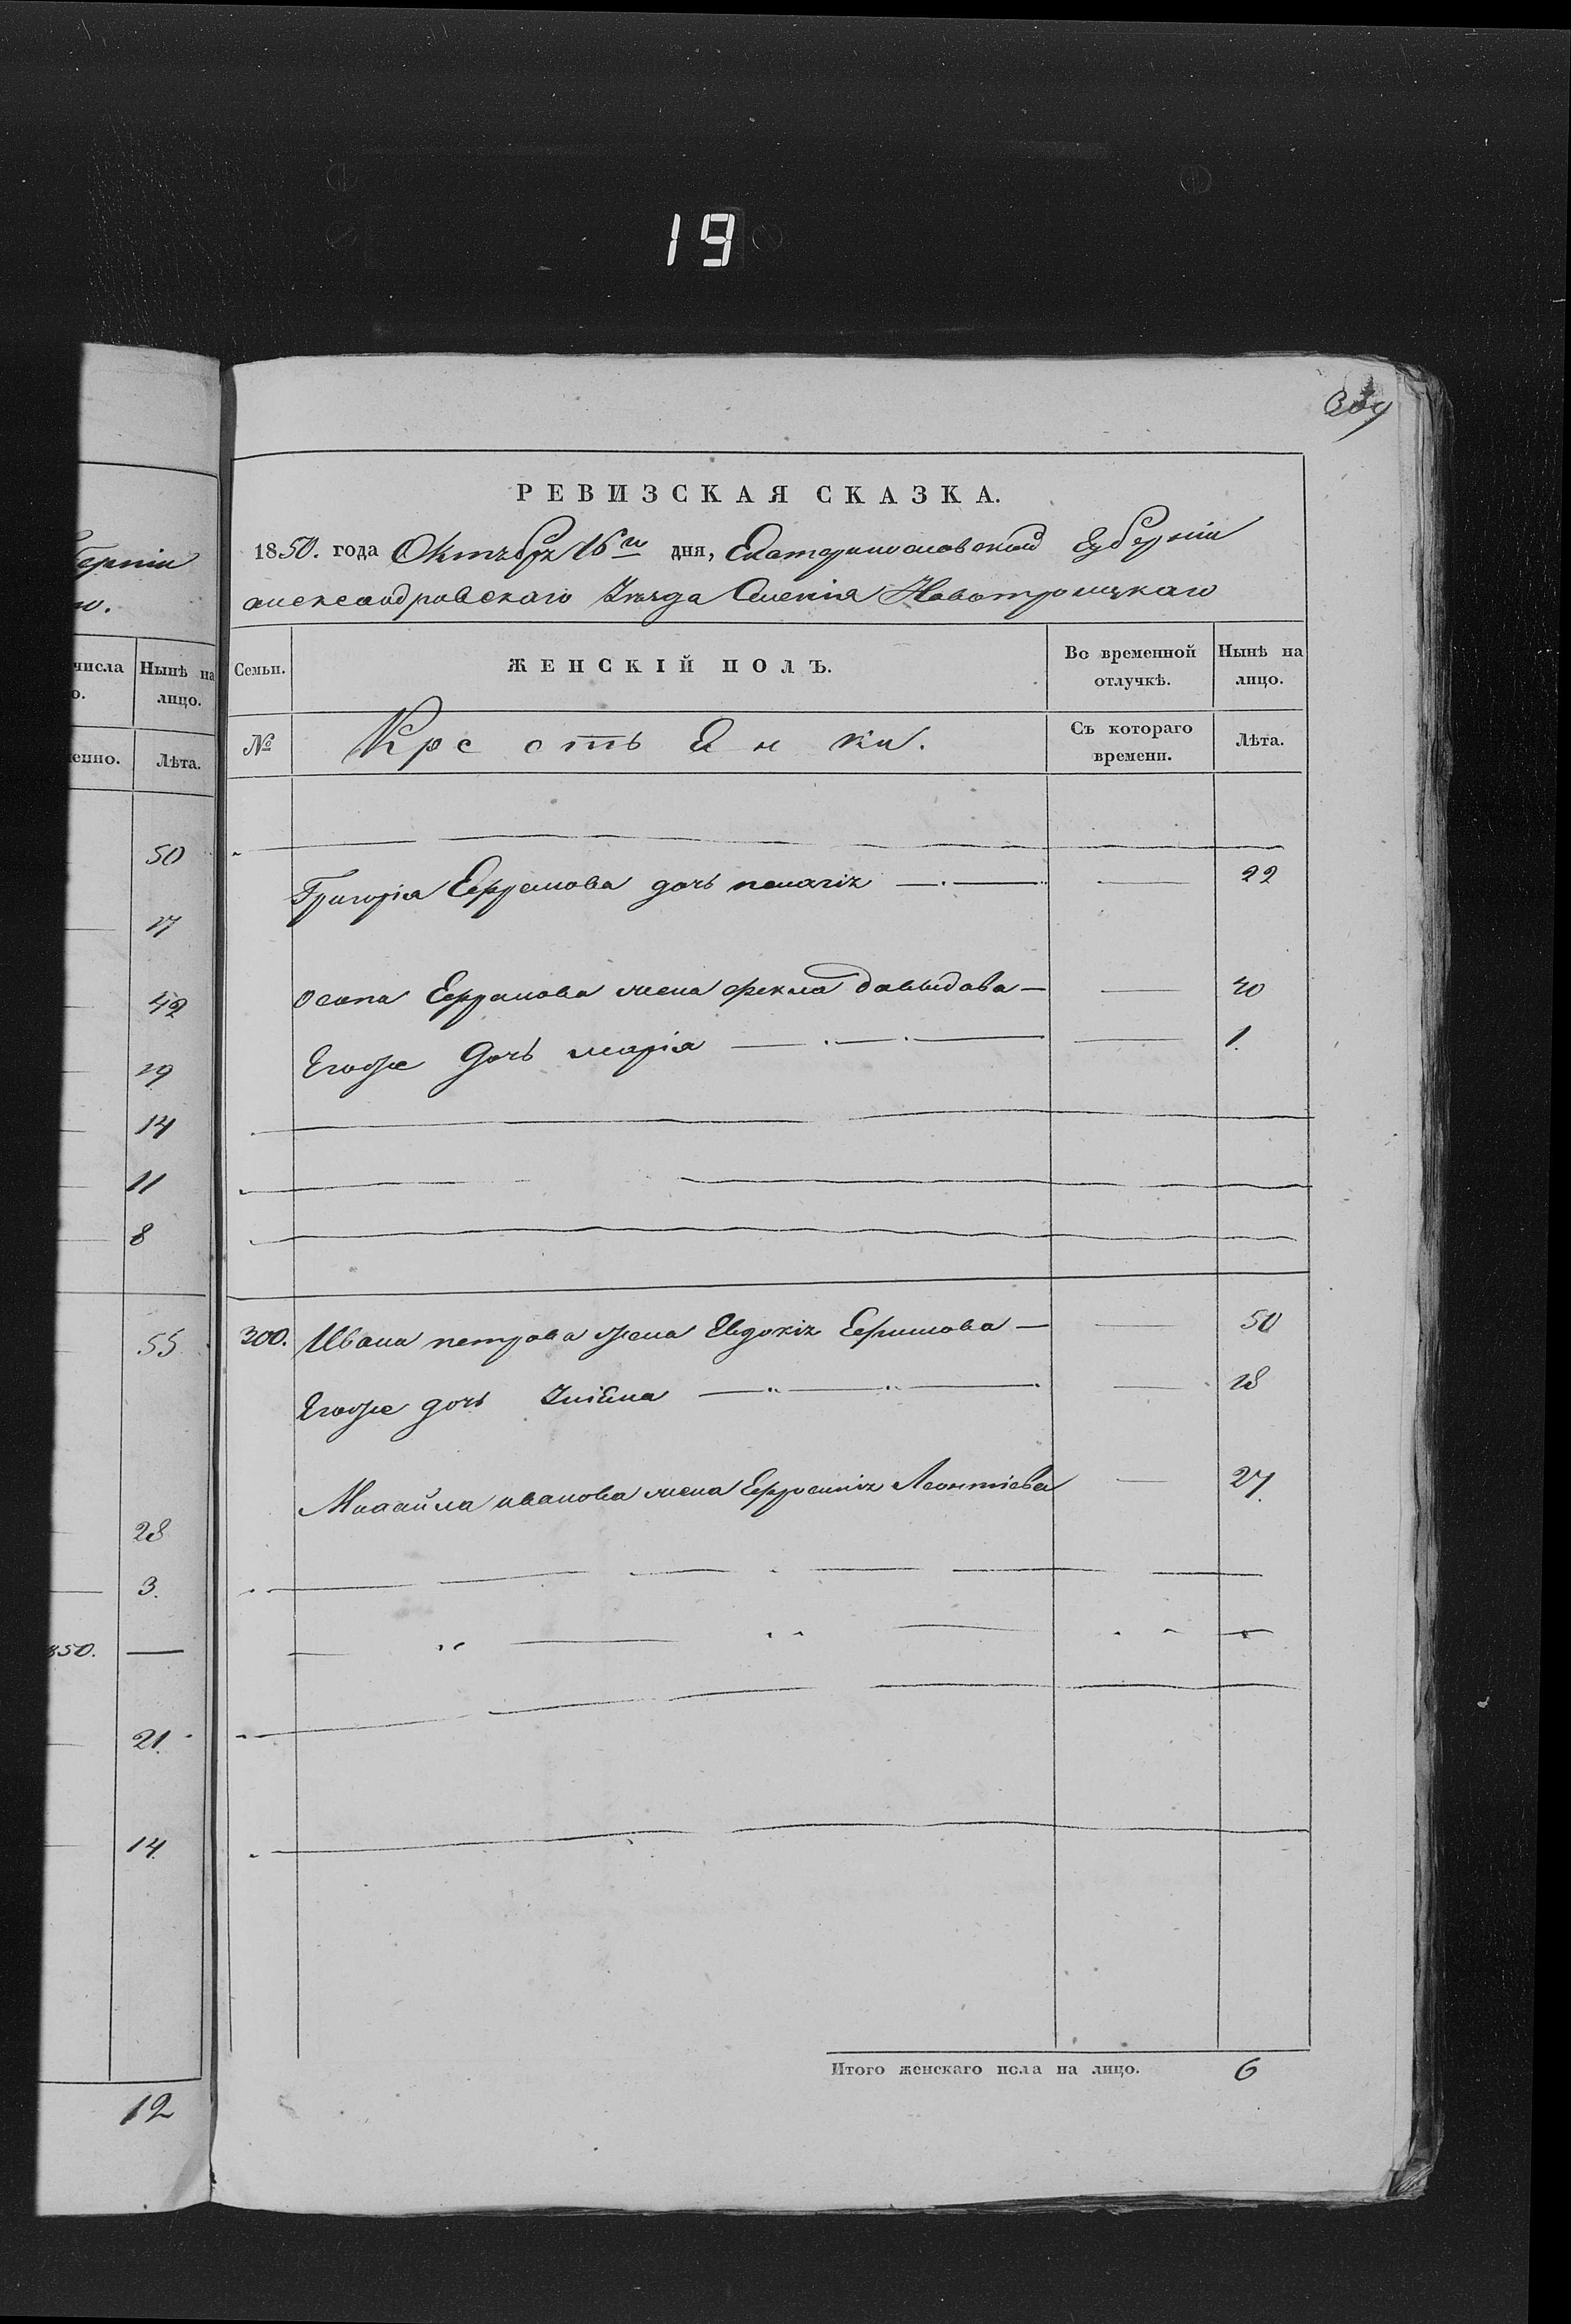 19
РЕВИЗСКАЯ СКАЗКА.
1850. года Октября 16го дня, Екатеринославской Губерніи
александровскаго Уѣзда Селенія Новотроицкаго
Семьи.
ЖЕНСКІЙ ПОЛЪ.
Во временной отлучкѣ.
Нынѣ на лицо.
№
Крестьянки.
Съ котораго времени.
Лѣта.
Григорія Ефремова дочь пелагія — 22
осипа Ефремова жена фекла давыдова — 40
Егоже дочь марія — 1.
300. Ивана петрова жена Евдокія Ефимова — 50
Егоже дочь Уліяна — 18
Михайла иванова жена Ефросинія Леонтіева — 27.
Итого женскаго пола на лицо. 6
губерніи
го.
числа
Нынѣ на лицо.
Лѣта.
50
17
42
19
14
11
8
55
28
3.
850. —
21.
14.
12